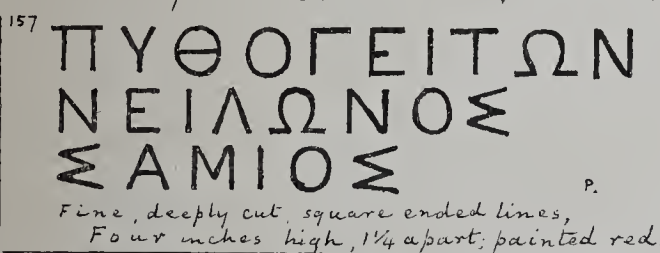 157 ΠΥΘΟΓΕΙΤΩΝ
ΝΕΙΛΩΝΟΣ
ΣΑΜΙΟΣ
P.
Fine, deeply cut, square ended lines,
Four inches high, 1¼ apart; painted red